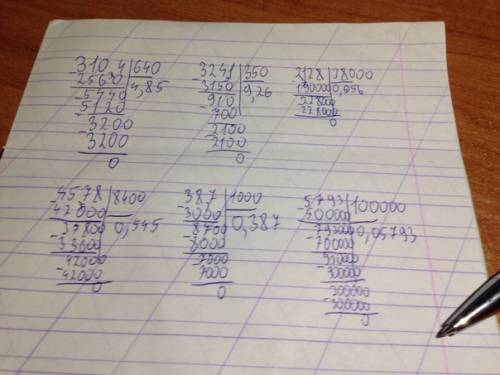 3104 | 640
-2560 | 4,85
-5440
5120
-3200
3200
0
-3241 | 350
3150 | 9,26
-910
700
-2100
2100
0
2128 | 38000
190000 | 0,056
-228000
228000
0
-4578 | 8400
42000 | 0,545
-37800
33600
-42000
42000
0
-387 | 1000
3000 | 0,387
-8700
8000
-7000
7000
0
-5793 | 100000
500000 | 0,05793
-793000
700000
-930000
-300000
300000
0